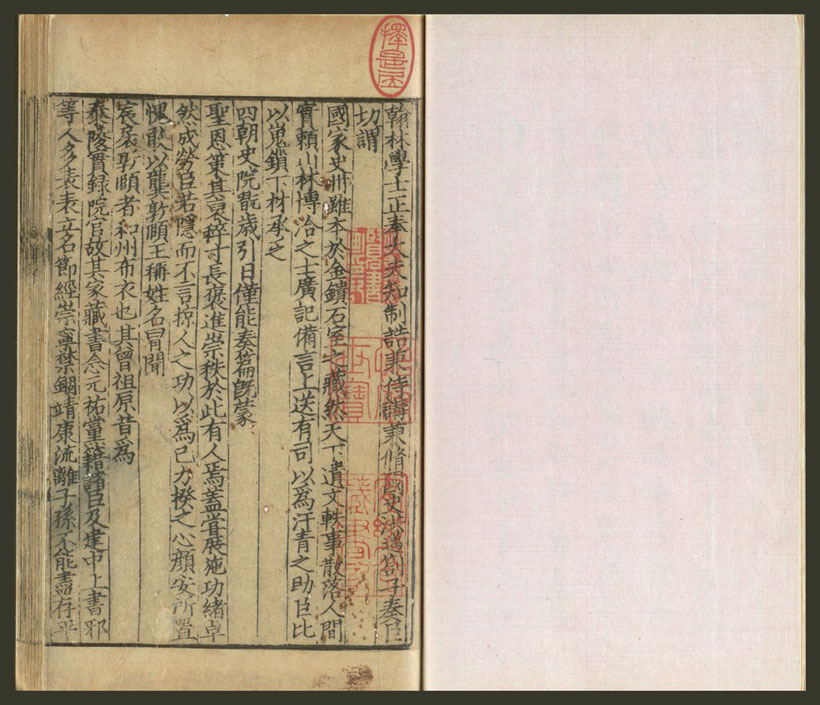 擇是居
翰林學士正奉大夫知制誥兼侍講兼脩國史洪邁劄子奏臣
切謂
國家史冊雖本於金鎖石室之藏然天下遺文軼事散落人間
實賴山林博洽之士廣記備言上送有司以爲汗青之助臣比
以嵬鎖下材承乏
四朝史院翫歲引日僅能奏篇旣蒙
聖恩第其裒稡寸長褒進崇秩於此有人焉蓋甞展施功緒卓
然成勞臣若隱而不言掠人之功以爲己力揆之心顔安所置
愧敢以龔敦頤王稱姓名冐聞
宸扆敦頤者和州布衣也其曾祖原昔爲
泰陵實録院官故其家藏書念元祐黨籍諸臣及建中上書邪
等人多表表立名節經崇寧禁錮靖康流離子孫不能盡存乎